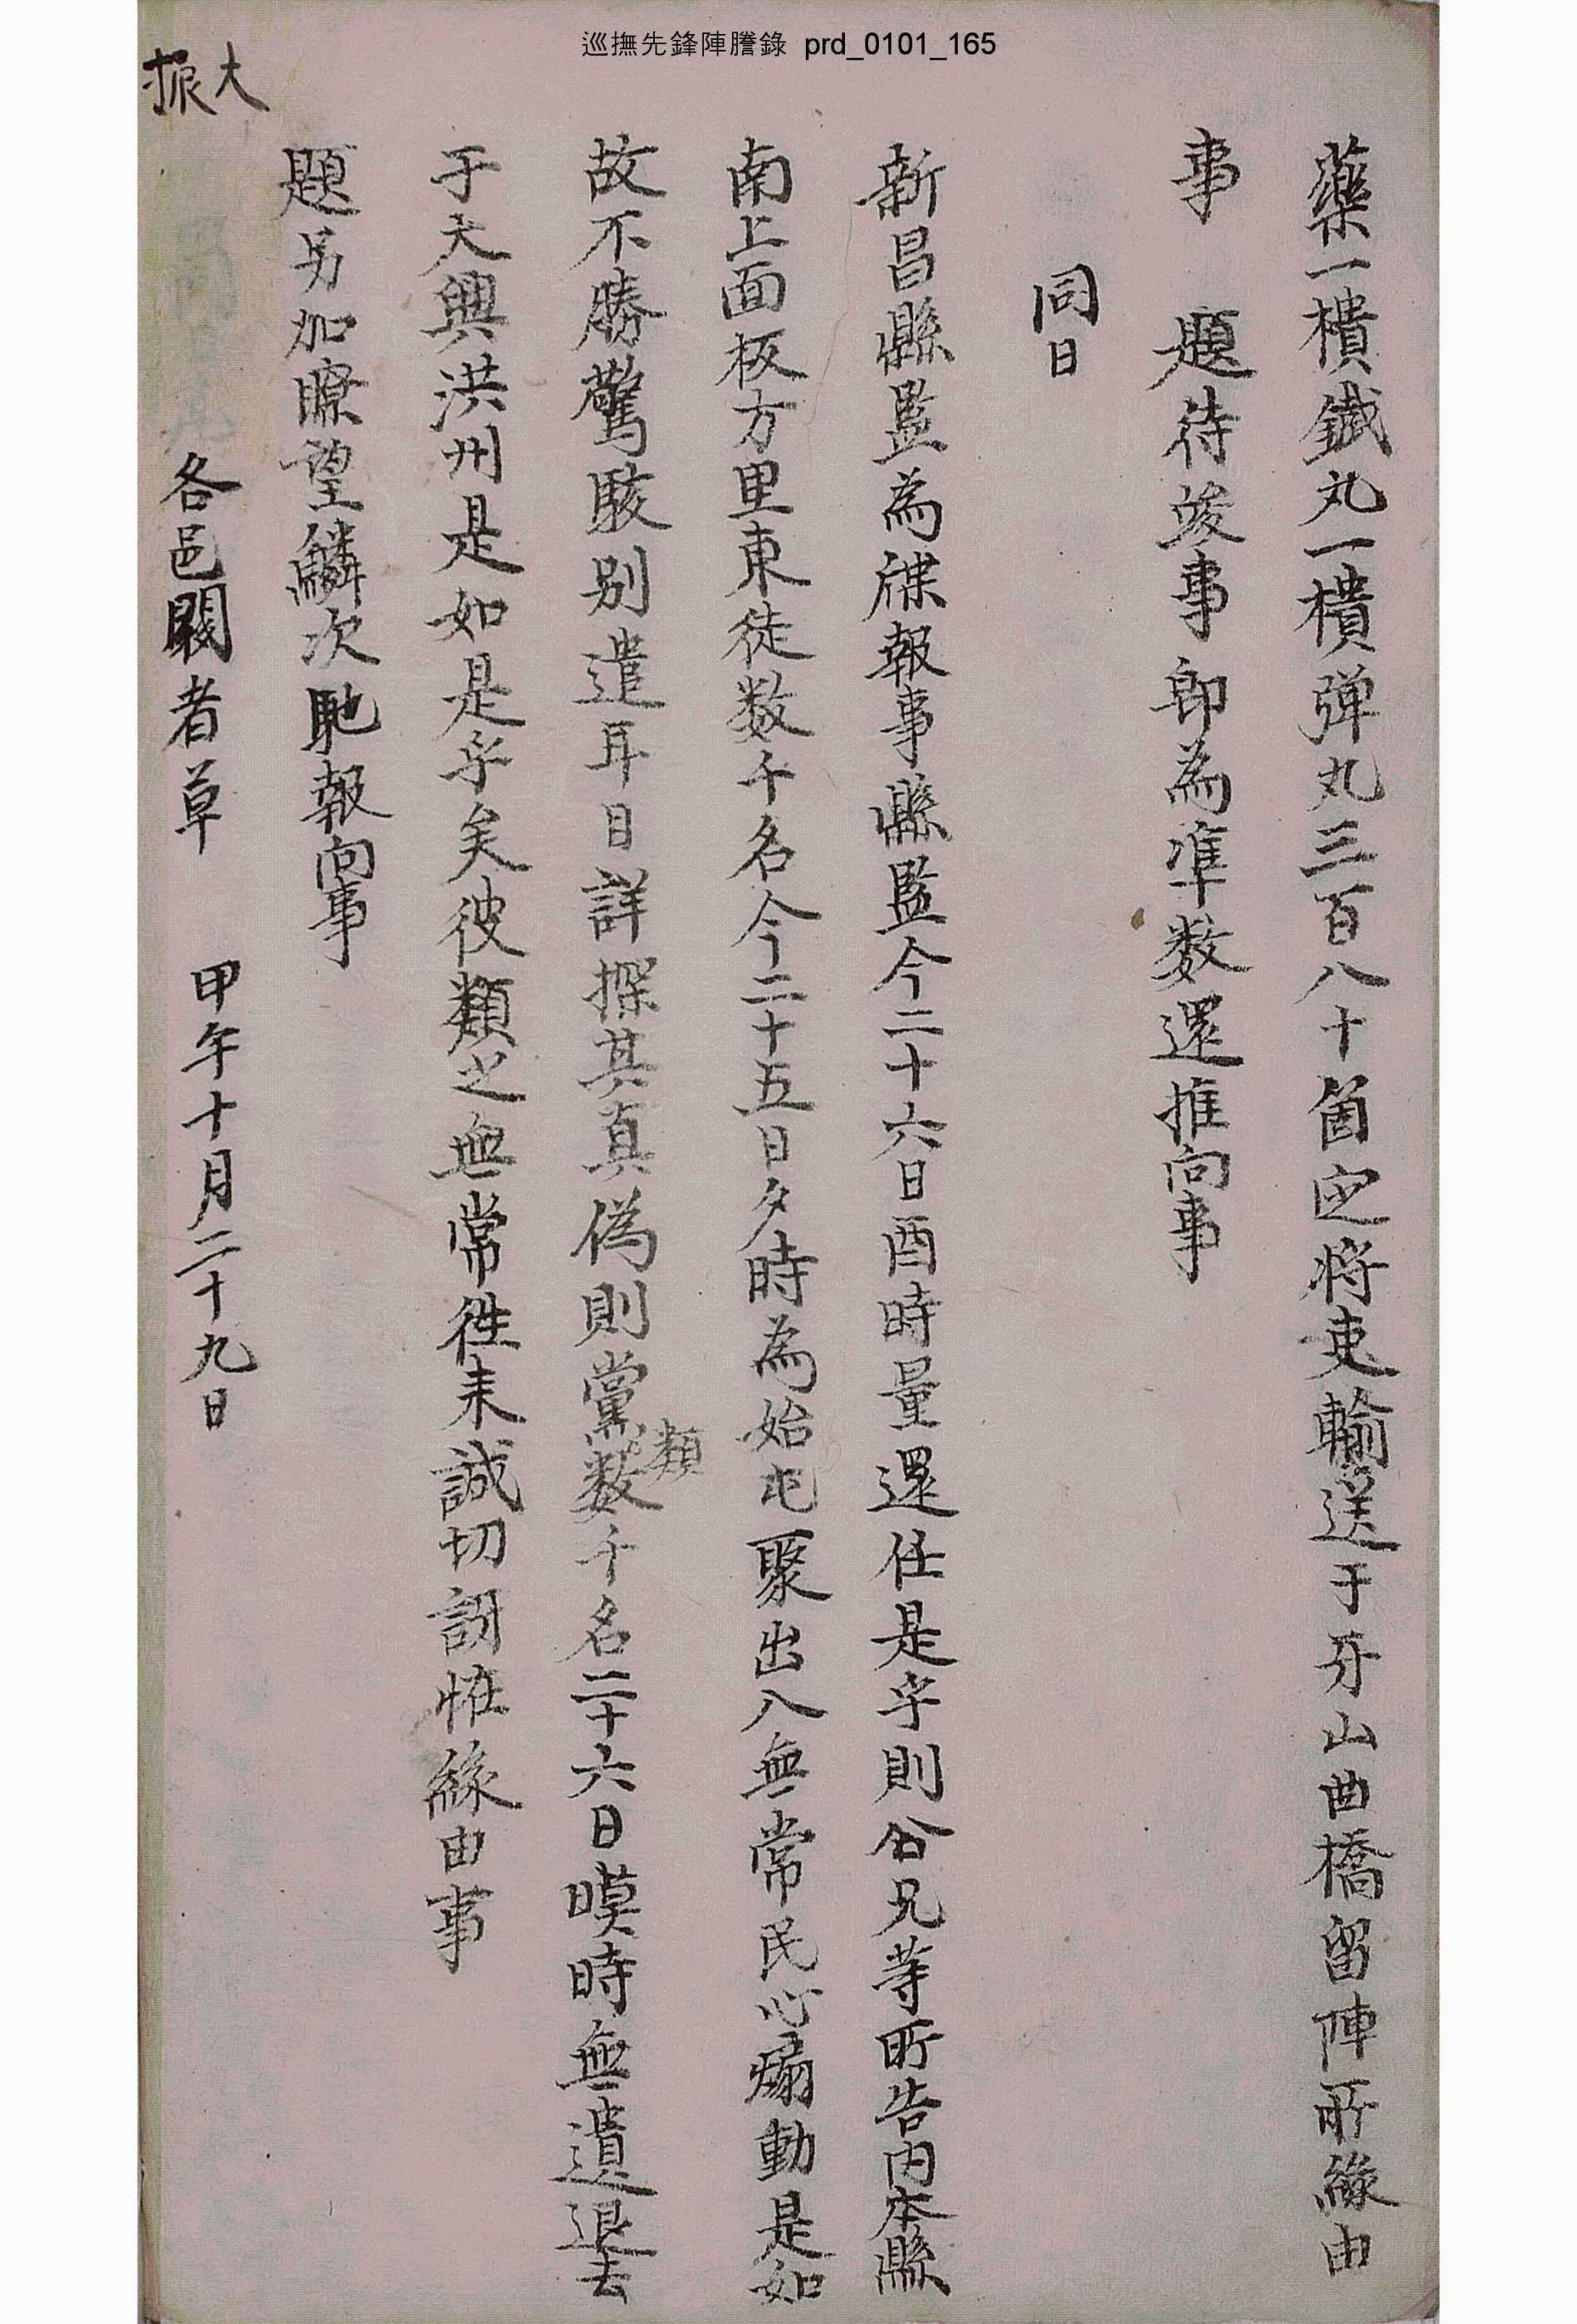 巡撫先鋒陣謄錄 prd_0101_165
藥一樻鐵丸一樻彈丸三百八十箇定將吏輸送于牙山曲橋留陣所緣由
事 題待竣事卽為準数還推向事
同日
新昌縣監為牒報事縣監今二十六日酉時量還任是乎則公兄等所告內本縣
南上面板方里東徒数千名今二十五日夕時為始屯聚出入無常民心煽動是如
故不勝驚駭別遣耳目詳探其真偽則黨類数千名二十六日暮時無遺退去
于大興洪州是如是乎矣彼類之無常徃来誠切訝恠緣由事
題另加瞭望鱗次馳報向事
各邑闕者草 甲午十月二十九日
大振